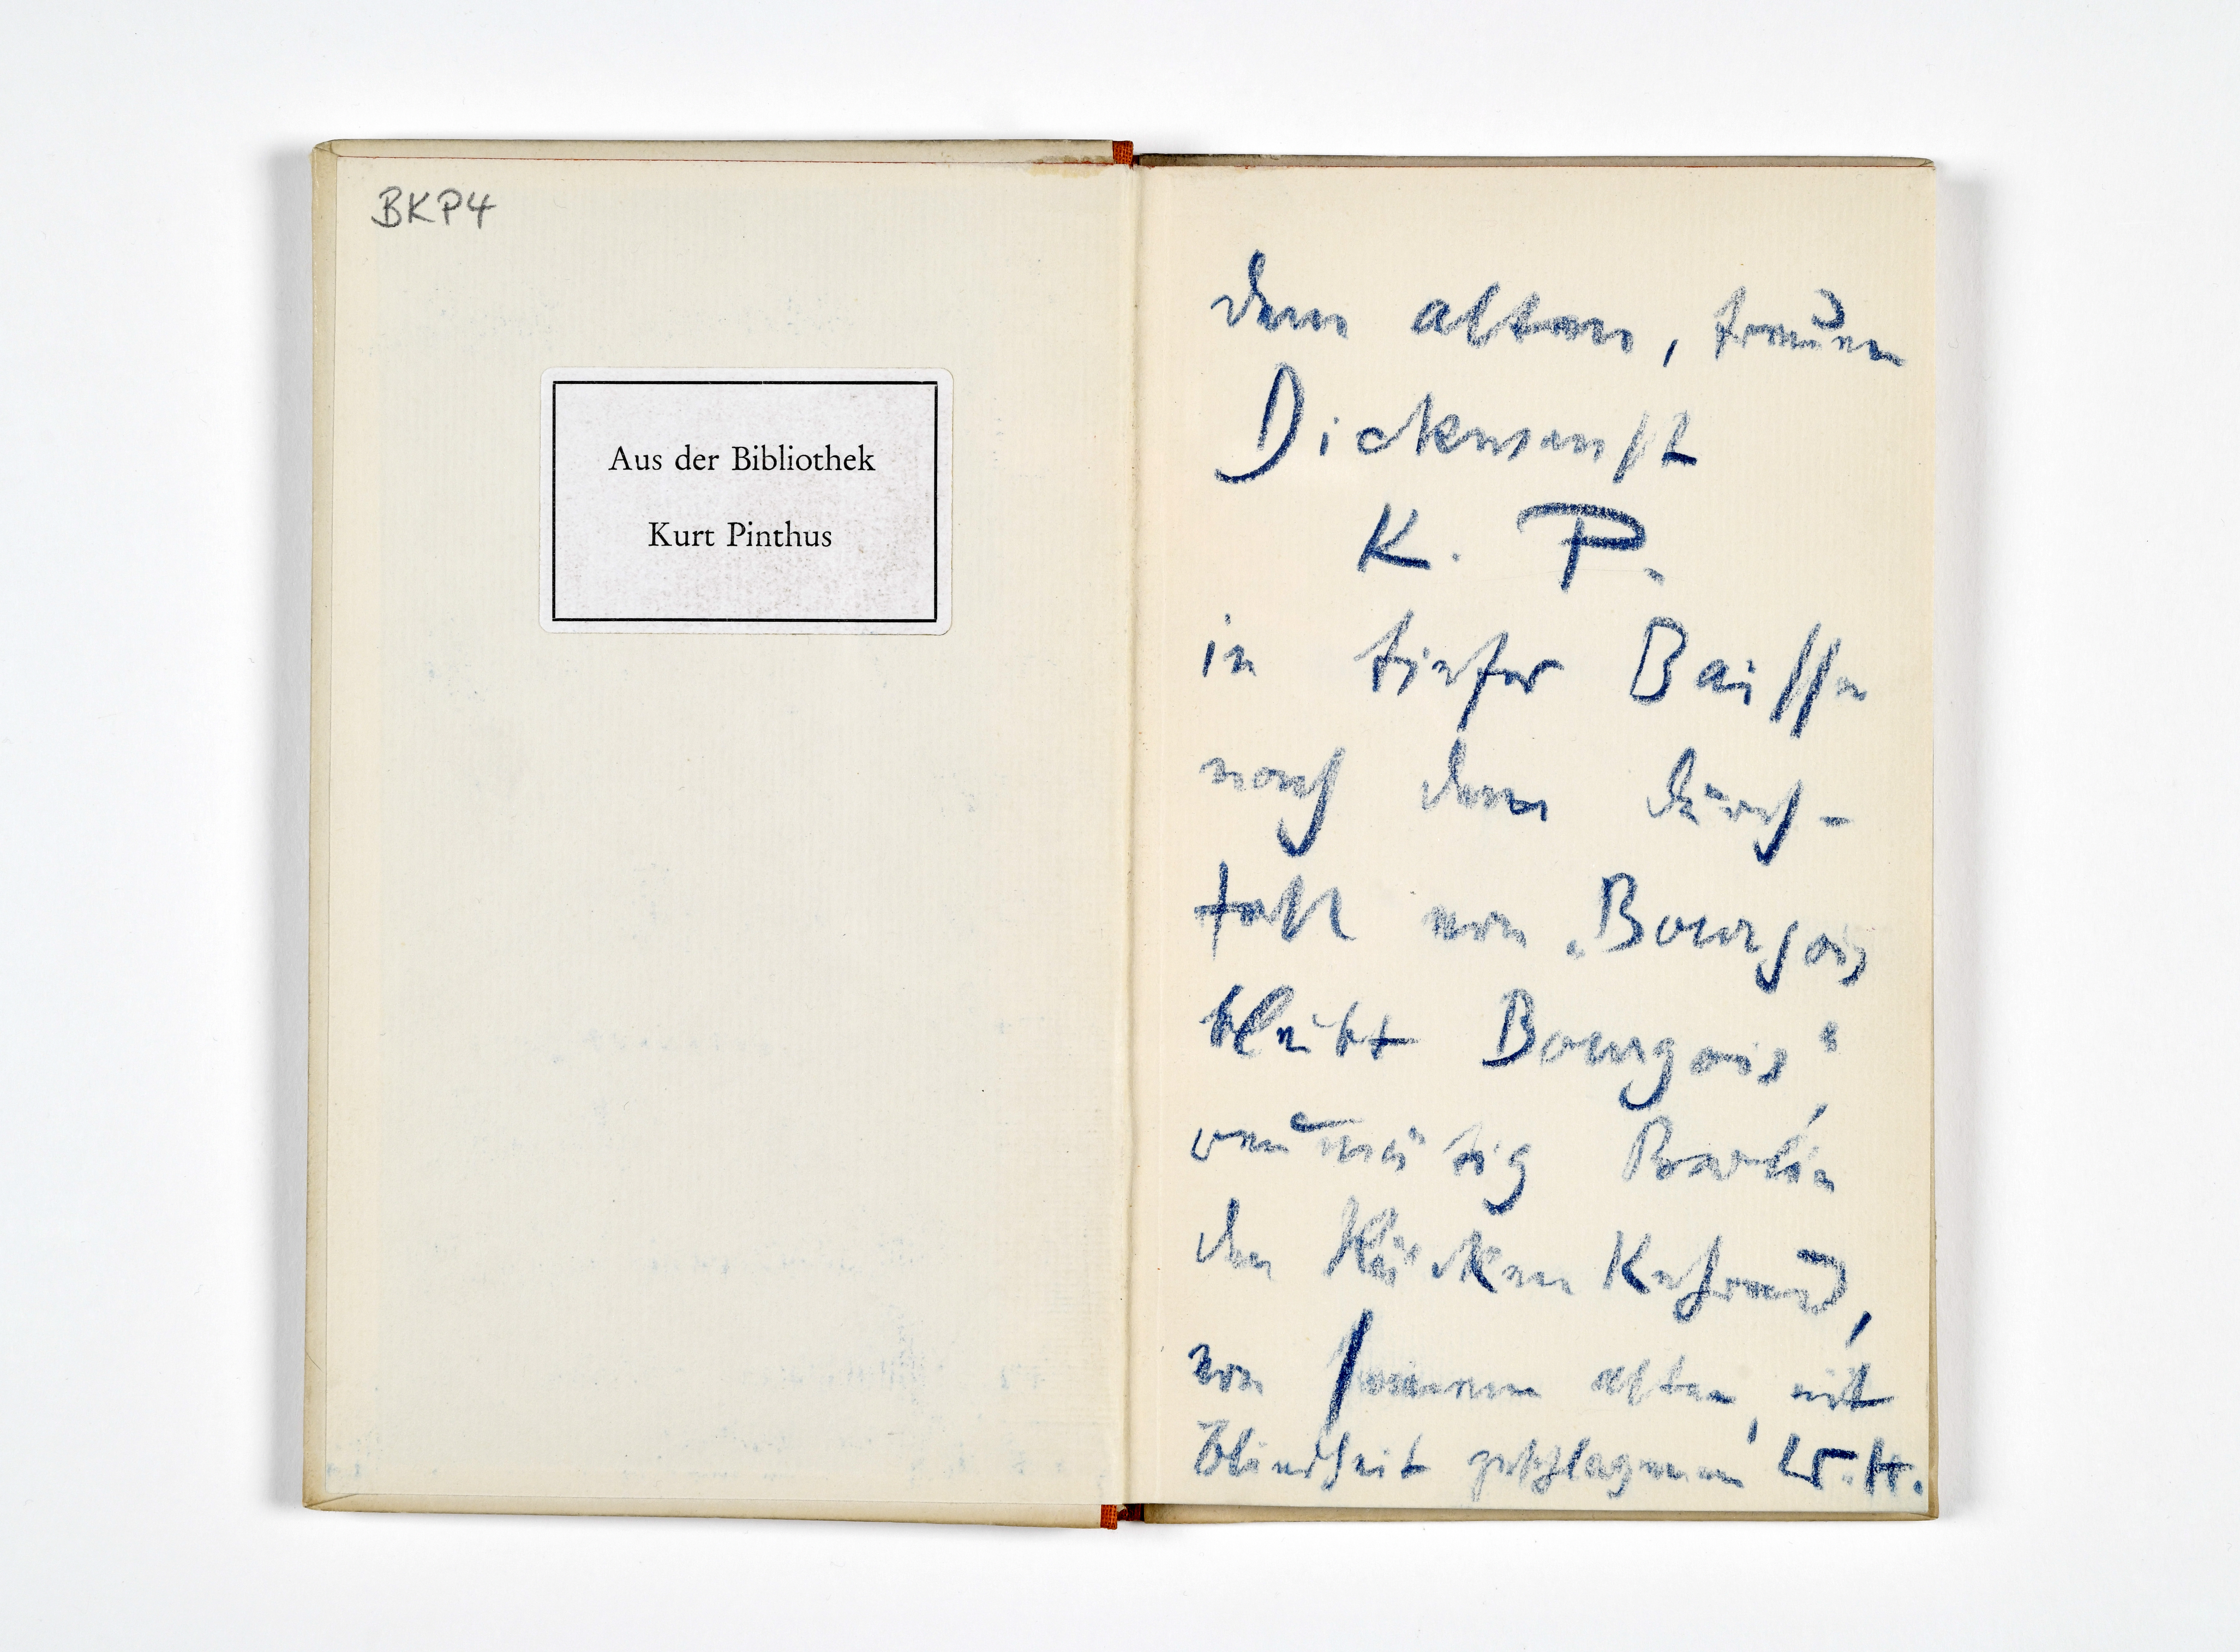 BKP4
Aus der Bibliothek
Kurt Pinthus
dem alten, treuen
Dickwanst
K. P.
in tiefer Baisse
nach dem Durch-
fall von „Bourgois
bleibt Bourgois“,
reumütig Berlin
den Rücken Kehrend,
von seinem alten, mit
Blindheit geschlagenen W. H.